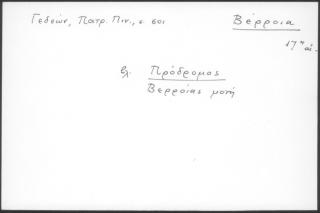 Γεδεών, Πατρ. Πιν., σ. 601
Βέρροια
17ος αἰ.
βλ. Πρόδρομος
Βερροίας μονή